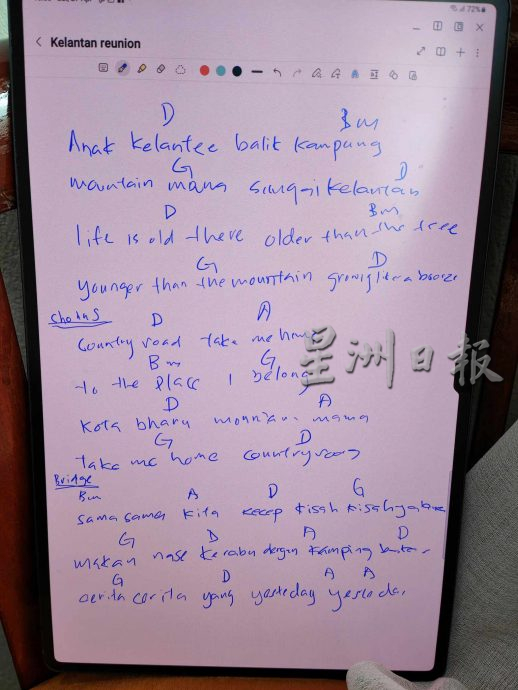 72%
Kelantan reunion
D Bm
Anak Kelantee balik kampung
G D
mountain mama sungai kelantan
D Bm
life is old there older than the tree
G D
younger than the mountain growing like a breeze
Chorus D A
Country road take me home
Bm G
to the place I belong
D A
Kota bharu mountain mama
G D
take me home country road
Bridge
Bm A D G
sama sama kita kecep kisah kisahnya
G D A D
makan nase kerabu dengan kamping
G D A A
cerita cerita yang yesteday yesteday
星洲日報